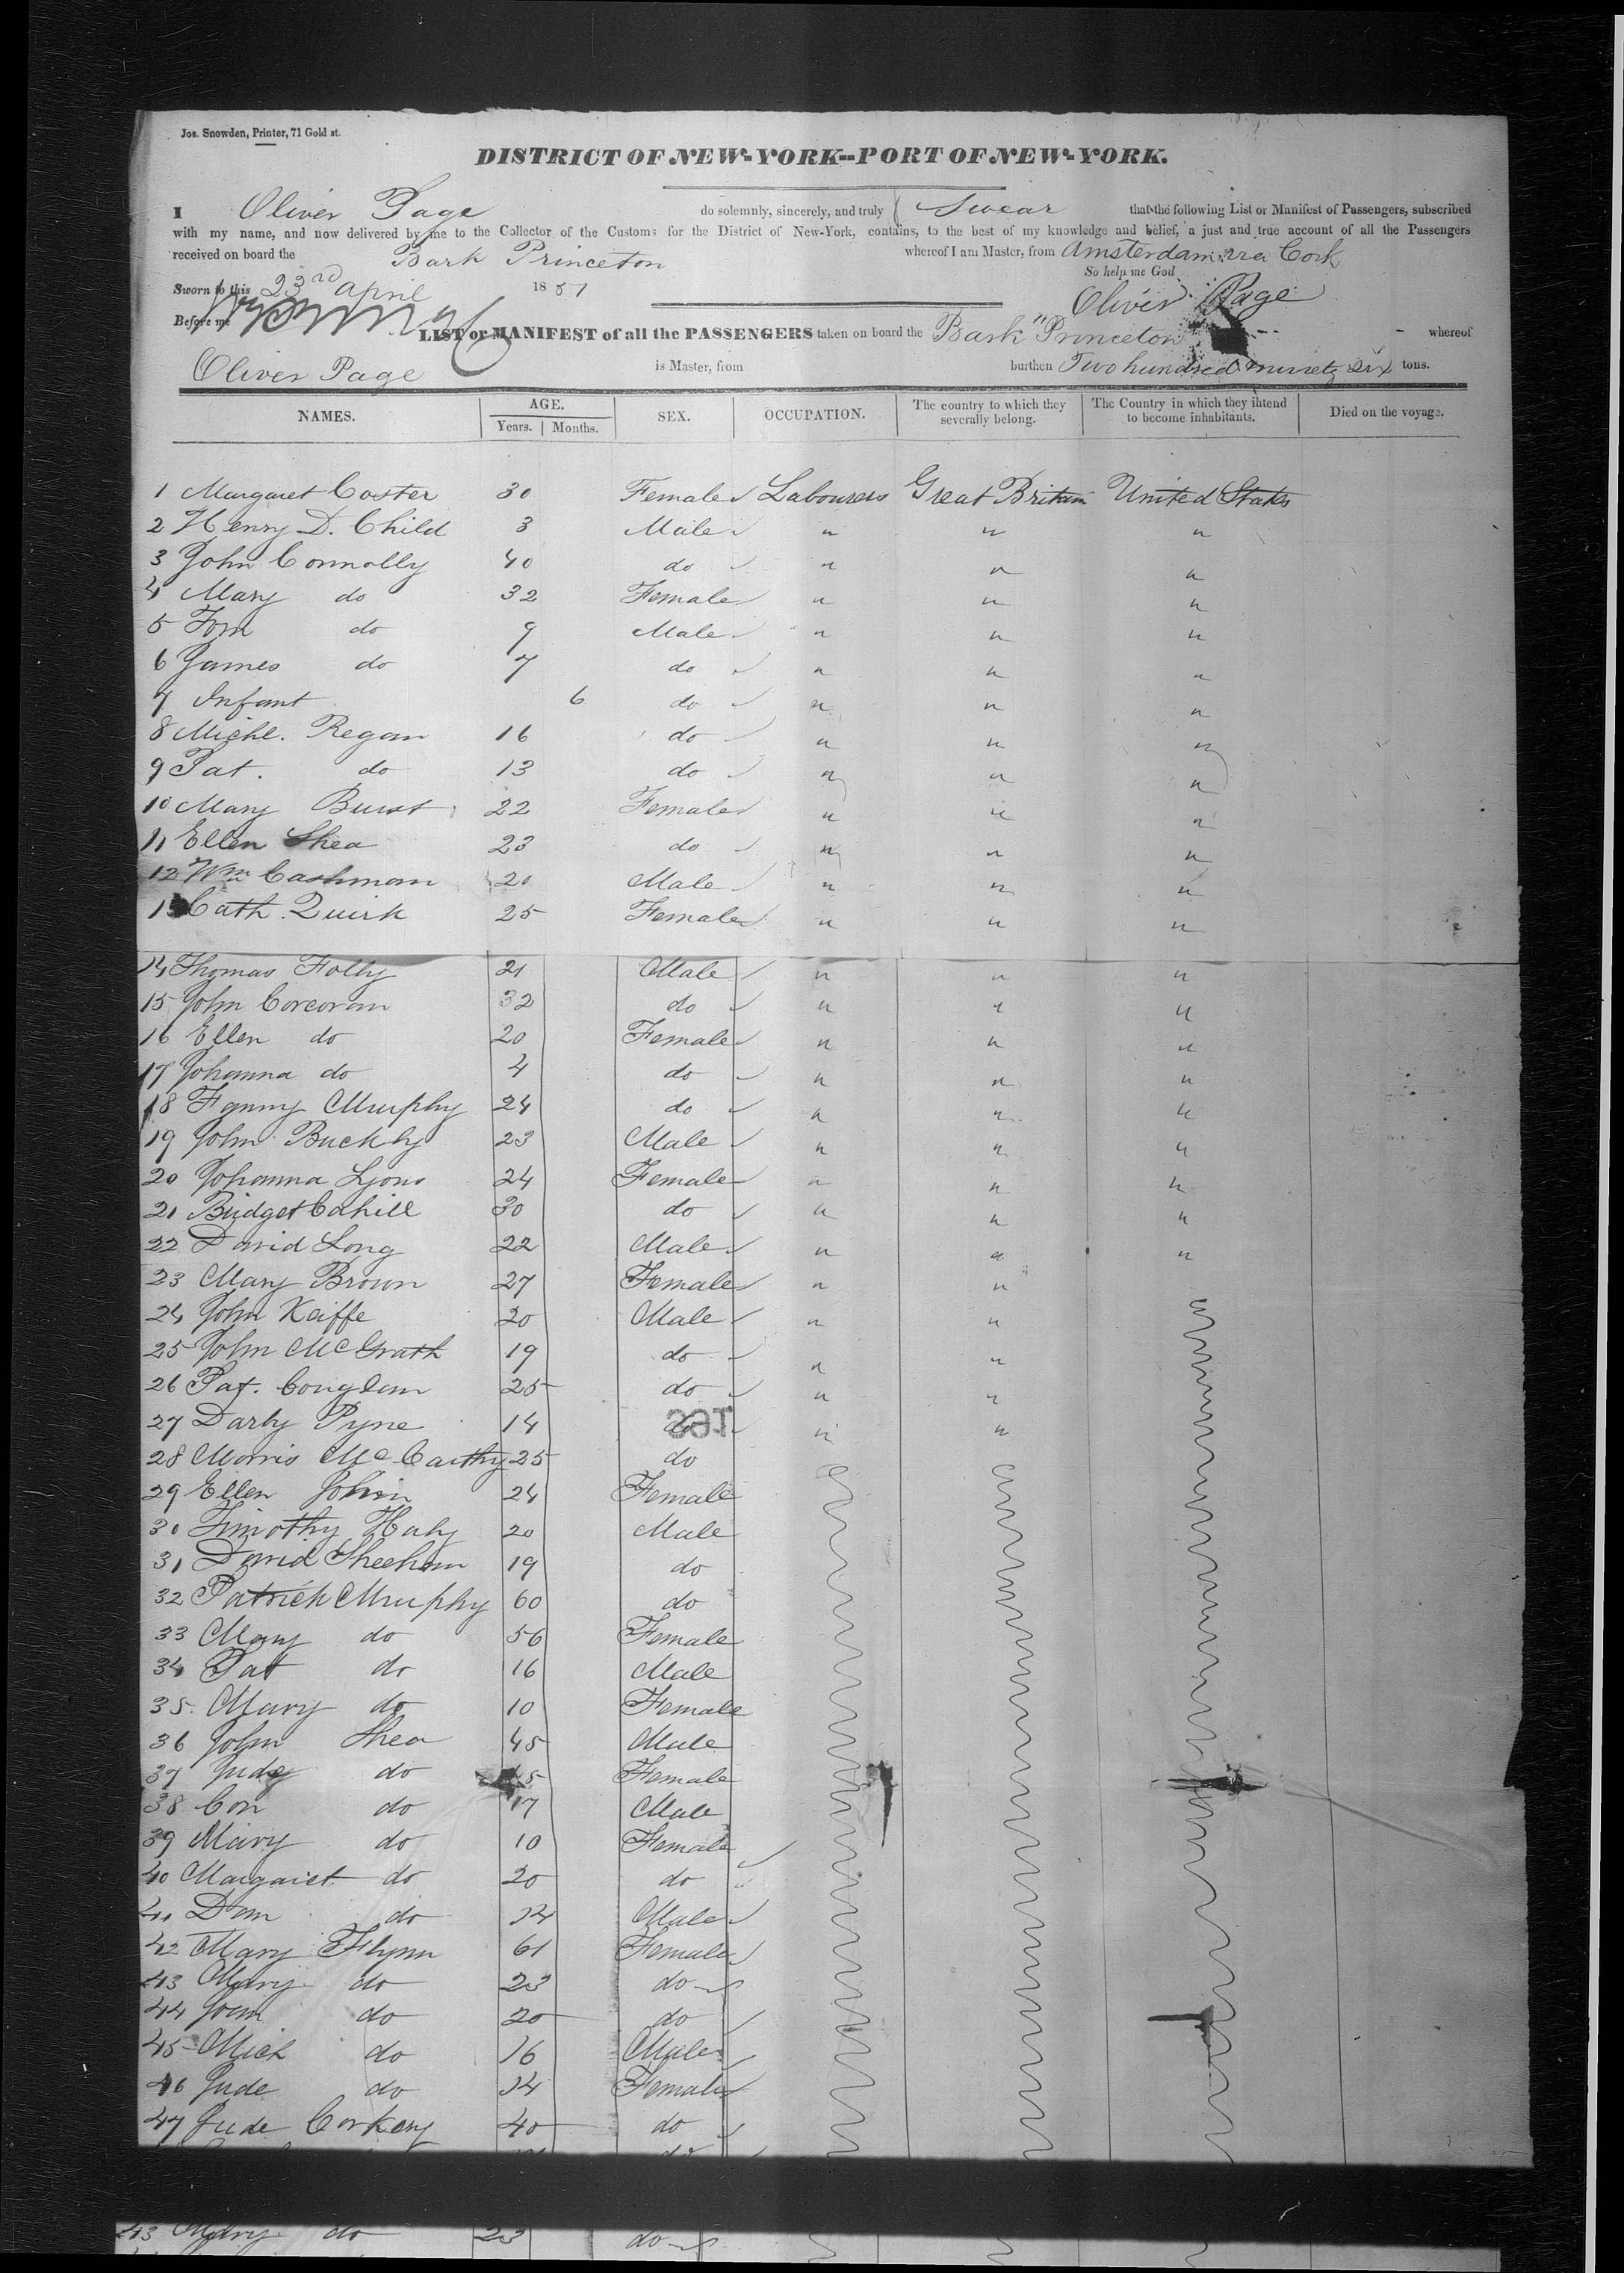 Jos. Snowden, Printer, 71 Gold st.
DISTRICT OF NEW-YORK--PORT OF NEW-YORK.
I Oliver Page do solemnly, sincerely, and truly Swear that the following List or Manifest of Passengers, subscribed
with my name, and now delivered by me to the Collector of the Customs for the District of New-York, contains, to the best of my knowledge and belief, a just and true account of all the Passengers
received on board the Bark Princeton whereof I am Master, from Amsterdam via Cork
So help me God
Sworn to this 23rd April 1851 Oliver Page
Before me
LIST or MANIFEST of all the PASSENGERS taken on board the Bark "Princeton whereof
Oliver Page is Master, from burthen Two hundred ninety six tons.
NAMES. AGE. Years. Months. SEX. OCCUPATION. The country to which they severally belong. The Country in which they intend to become inhabitants. Died on the voyage.
1 Margaret Coster 30 Female Labourers Great Britain United States
2 Henry D. Child 3 Male " " "
3 John Connolly 40 do " " "
4 Mary do 32 Female " " "
5 Tom do 9 Male " " "
6 James do 7 do " " "
7 Infant 6 do " " "
8 Michl. Regan 16 do " " "
9 Pat. do 13 do " " "
10 Mary Burst 22 Female " " "
11 Ellen Shea 23 do " " "
12 Wm Cashman 20 Male " " "
13 Cath. Quirk 25 Female " " "
14 Thomas Folly 21 Male " " "
15 John Corcoran 32 do " " "
16 Ellen do 20 Female " " "
17 Johanna do 4 do " " "
18 Fanny Murphy 24 do " " "
19 John Buckly 23 Male " " "
20 Johanna Lyons 24 Female " " "
21 Bridget Cahill 30 do " " "
22 David Long 22 Male " " "
23 Mary Brown 27 Female " "
24 John Keiffe 20 Male " "
25 John McGrath 19 do " "
26 Pat. Conglan 25 do " "
27 Darby Pyne 14 " "
28 Morris McCarthy 25 do
29 Ellen 24 Female
30 Timothy Haly 20 Male
31 David Sheehan 19 do
32 Patrick Murphy 60 do
33 Mary do 56 Female
34 Pat do 16 Male
35. Mary do 10 Female
36 John Shea 45 Male
37 Judy do 45 Female
38 Con do 17 Male
39 Mary do 10 Female
40 Margaret do 20 do
41 Dan do 14 Male
42 Mary Flynn 61 Female
43 Mary do 23 do
44 Joan do 20 do
45 Mich do 16 Male
46 Jude do 14 Female
47 Jude Corkery 40 do
43 Mary do 23 do